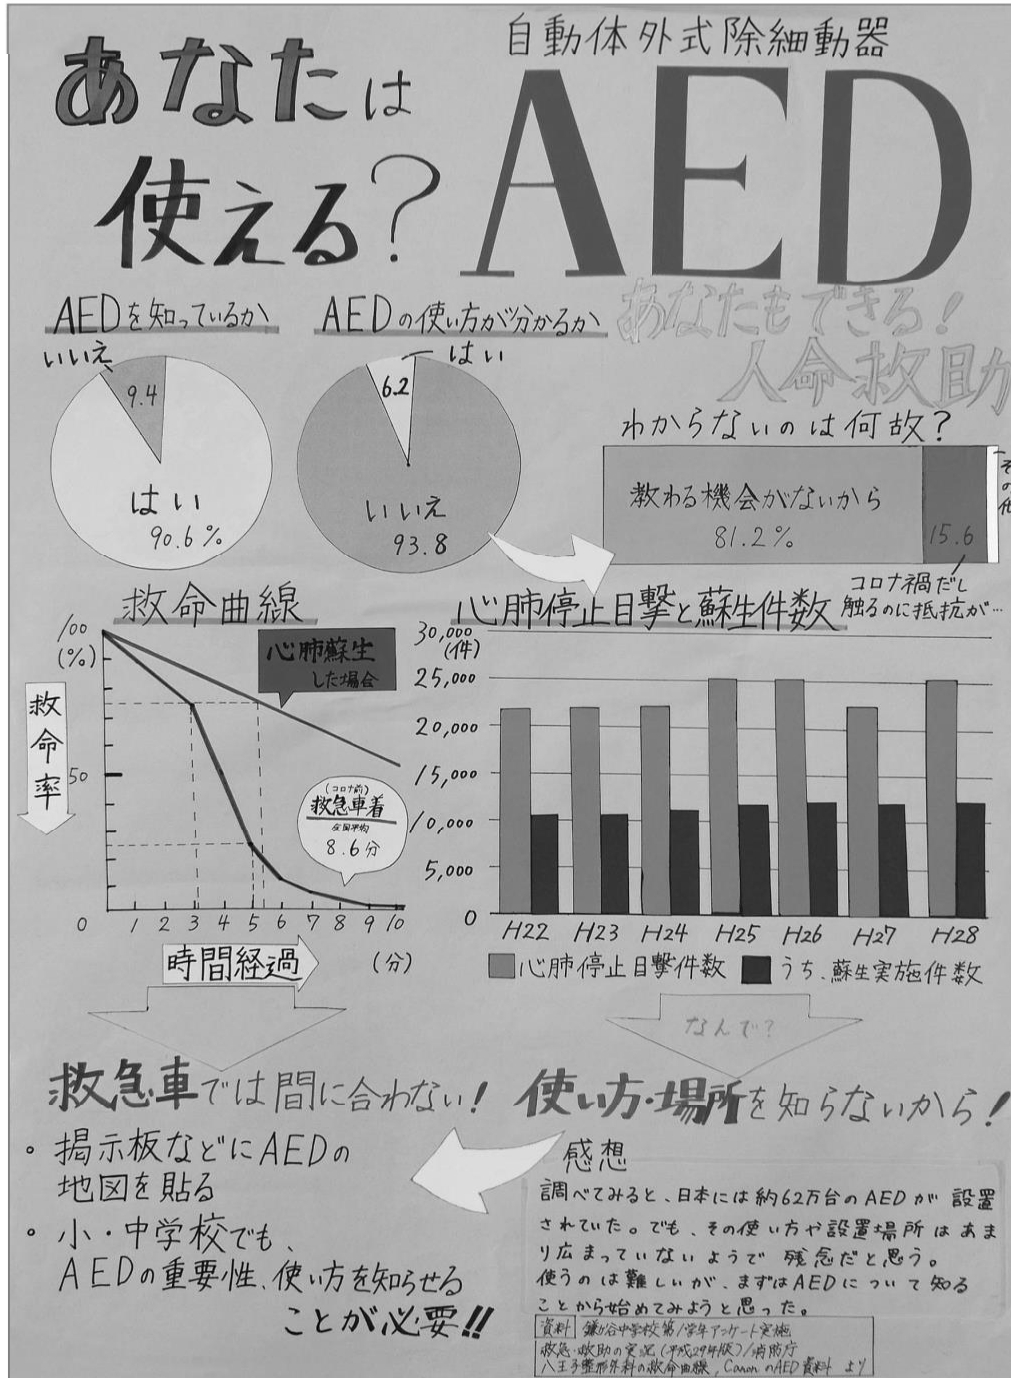 自動体外式除細動器
あなたは
使える?
AED
あなたもできる!
人命救助
AEDを知っているか
いいえ
9.4
はい
90.6%
AEDの使い方が分かるか
はい
6.2
いいえ
93.8
わからないのは何故?
教わる機会がないから
81.2%
15.6
その他
コロナ禍だし
触るのに抵抗が…
救命曲線
100
(%)
救命率
50
0 1 2 3 4 5 6 7 8 9 10
時間経過
(分)
心肺蘇生
した場合
(コロナ前)
救急車着
全国平均
8.6分
心肺停止目撃と蘇生件数
30,000
(件)
25,000
20,000
15,000
10,000
5,000
0
H22 H23 H24 H25 H26 H27 H28
心肺停止目撃件数 うち、蘇生実施件数
なんで?
救急車では間に合わない!
使い方・場所を知らないから!
・掲示板などにAEDの
地図を貼る
・小・中学校でも、
AEDの重要性、使い方を知らせる
ことが必要!!
感想
調べてみると、日本には約62万台のAEDが設置
されていた。でも、その使い方や設置場所はあま
り広まっていないようで残念だと思う。
使うのは難しいが、まずはAEDについて知る
ことから始めてみようと思った。
資料 鎌ヶ谷中学校第1学年アンケート実施
救急・救助の実況(平成29年版)/消防庁
八王子整形外科の救命曲線, CanonのAED資料 より